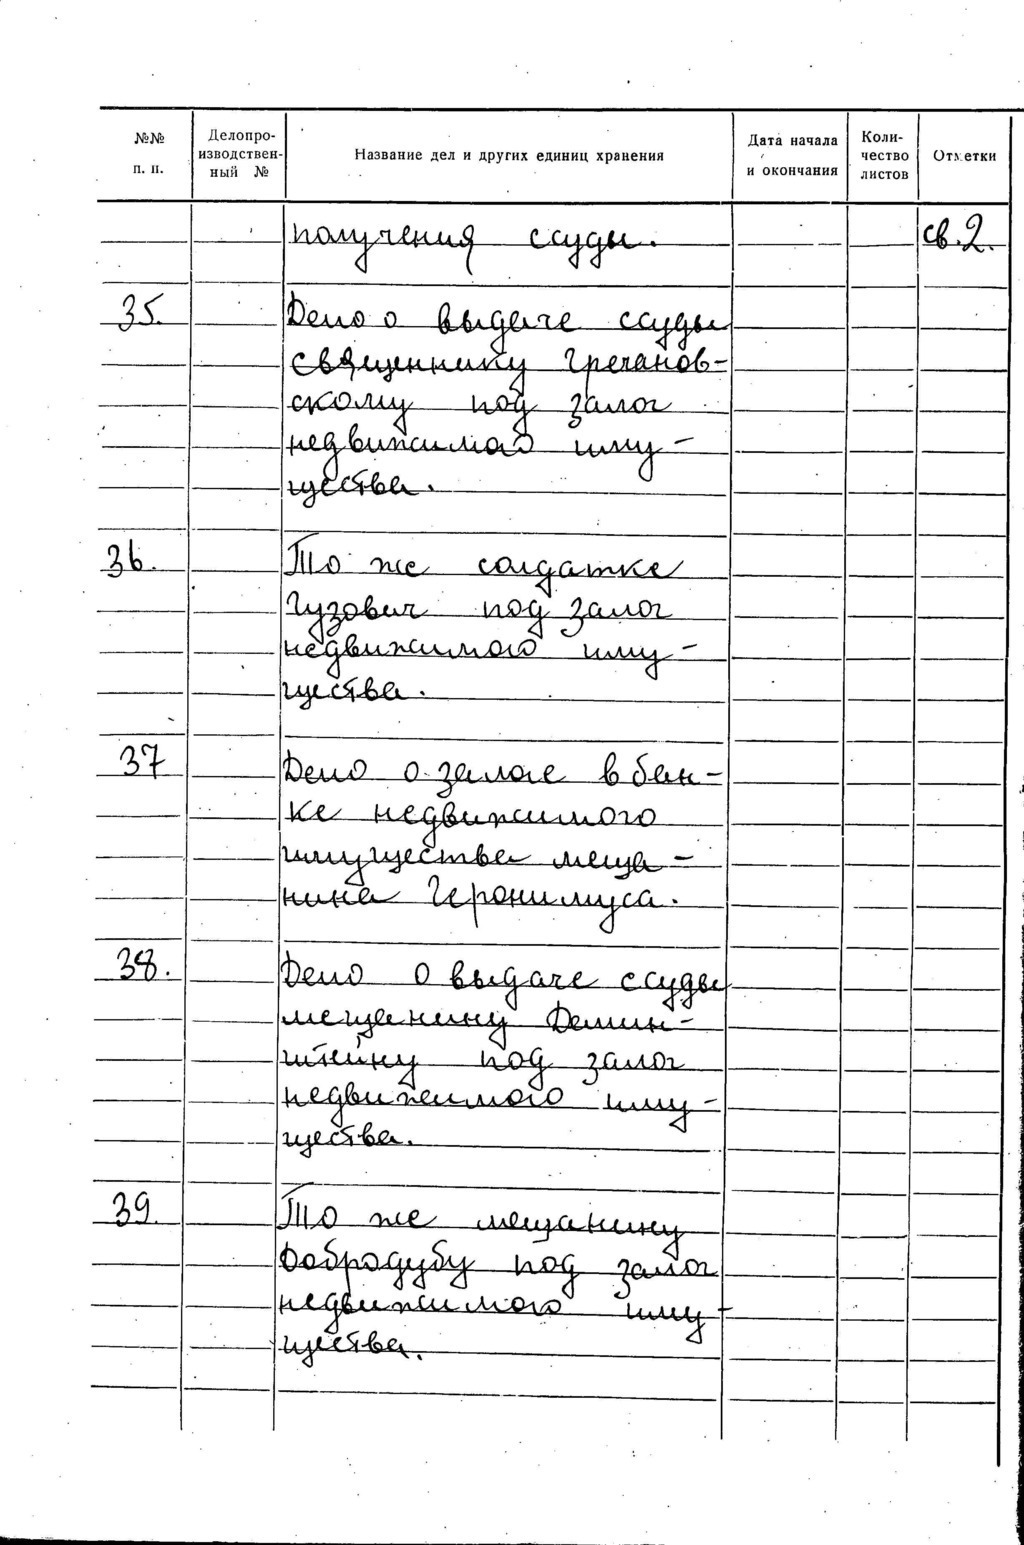 №№ п. п. Делопро-изводствен-ный № Название дел и других единиц хранения Дата начала и окончания Коли-чество листов Отметки
получения ссуды. св.2.
35. Дело о выдаче ссуды
священнику Гречанов-
скому под залог
недвижимого иму-
щества.
36. То же солдатке
Гузович под залог
недвижимого иму-
щества.
37 Дело о залоге в бан-
ке недвижимого
имущества меща-
нина Геронимуса.
38. Дело о выдаче ссуды
мещанину Демин-
штейну под залог
недвижимого иму-
щества.
39. То же мещанину
Добродубу под залог
недвижимого иму-
щества.